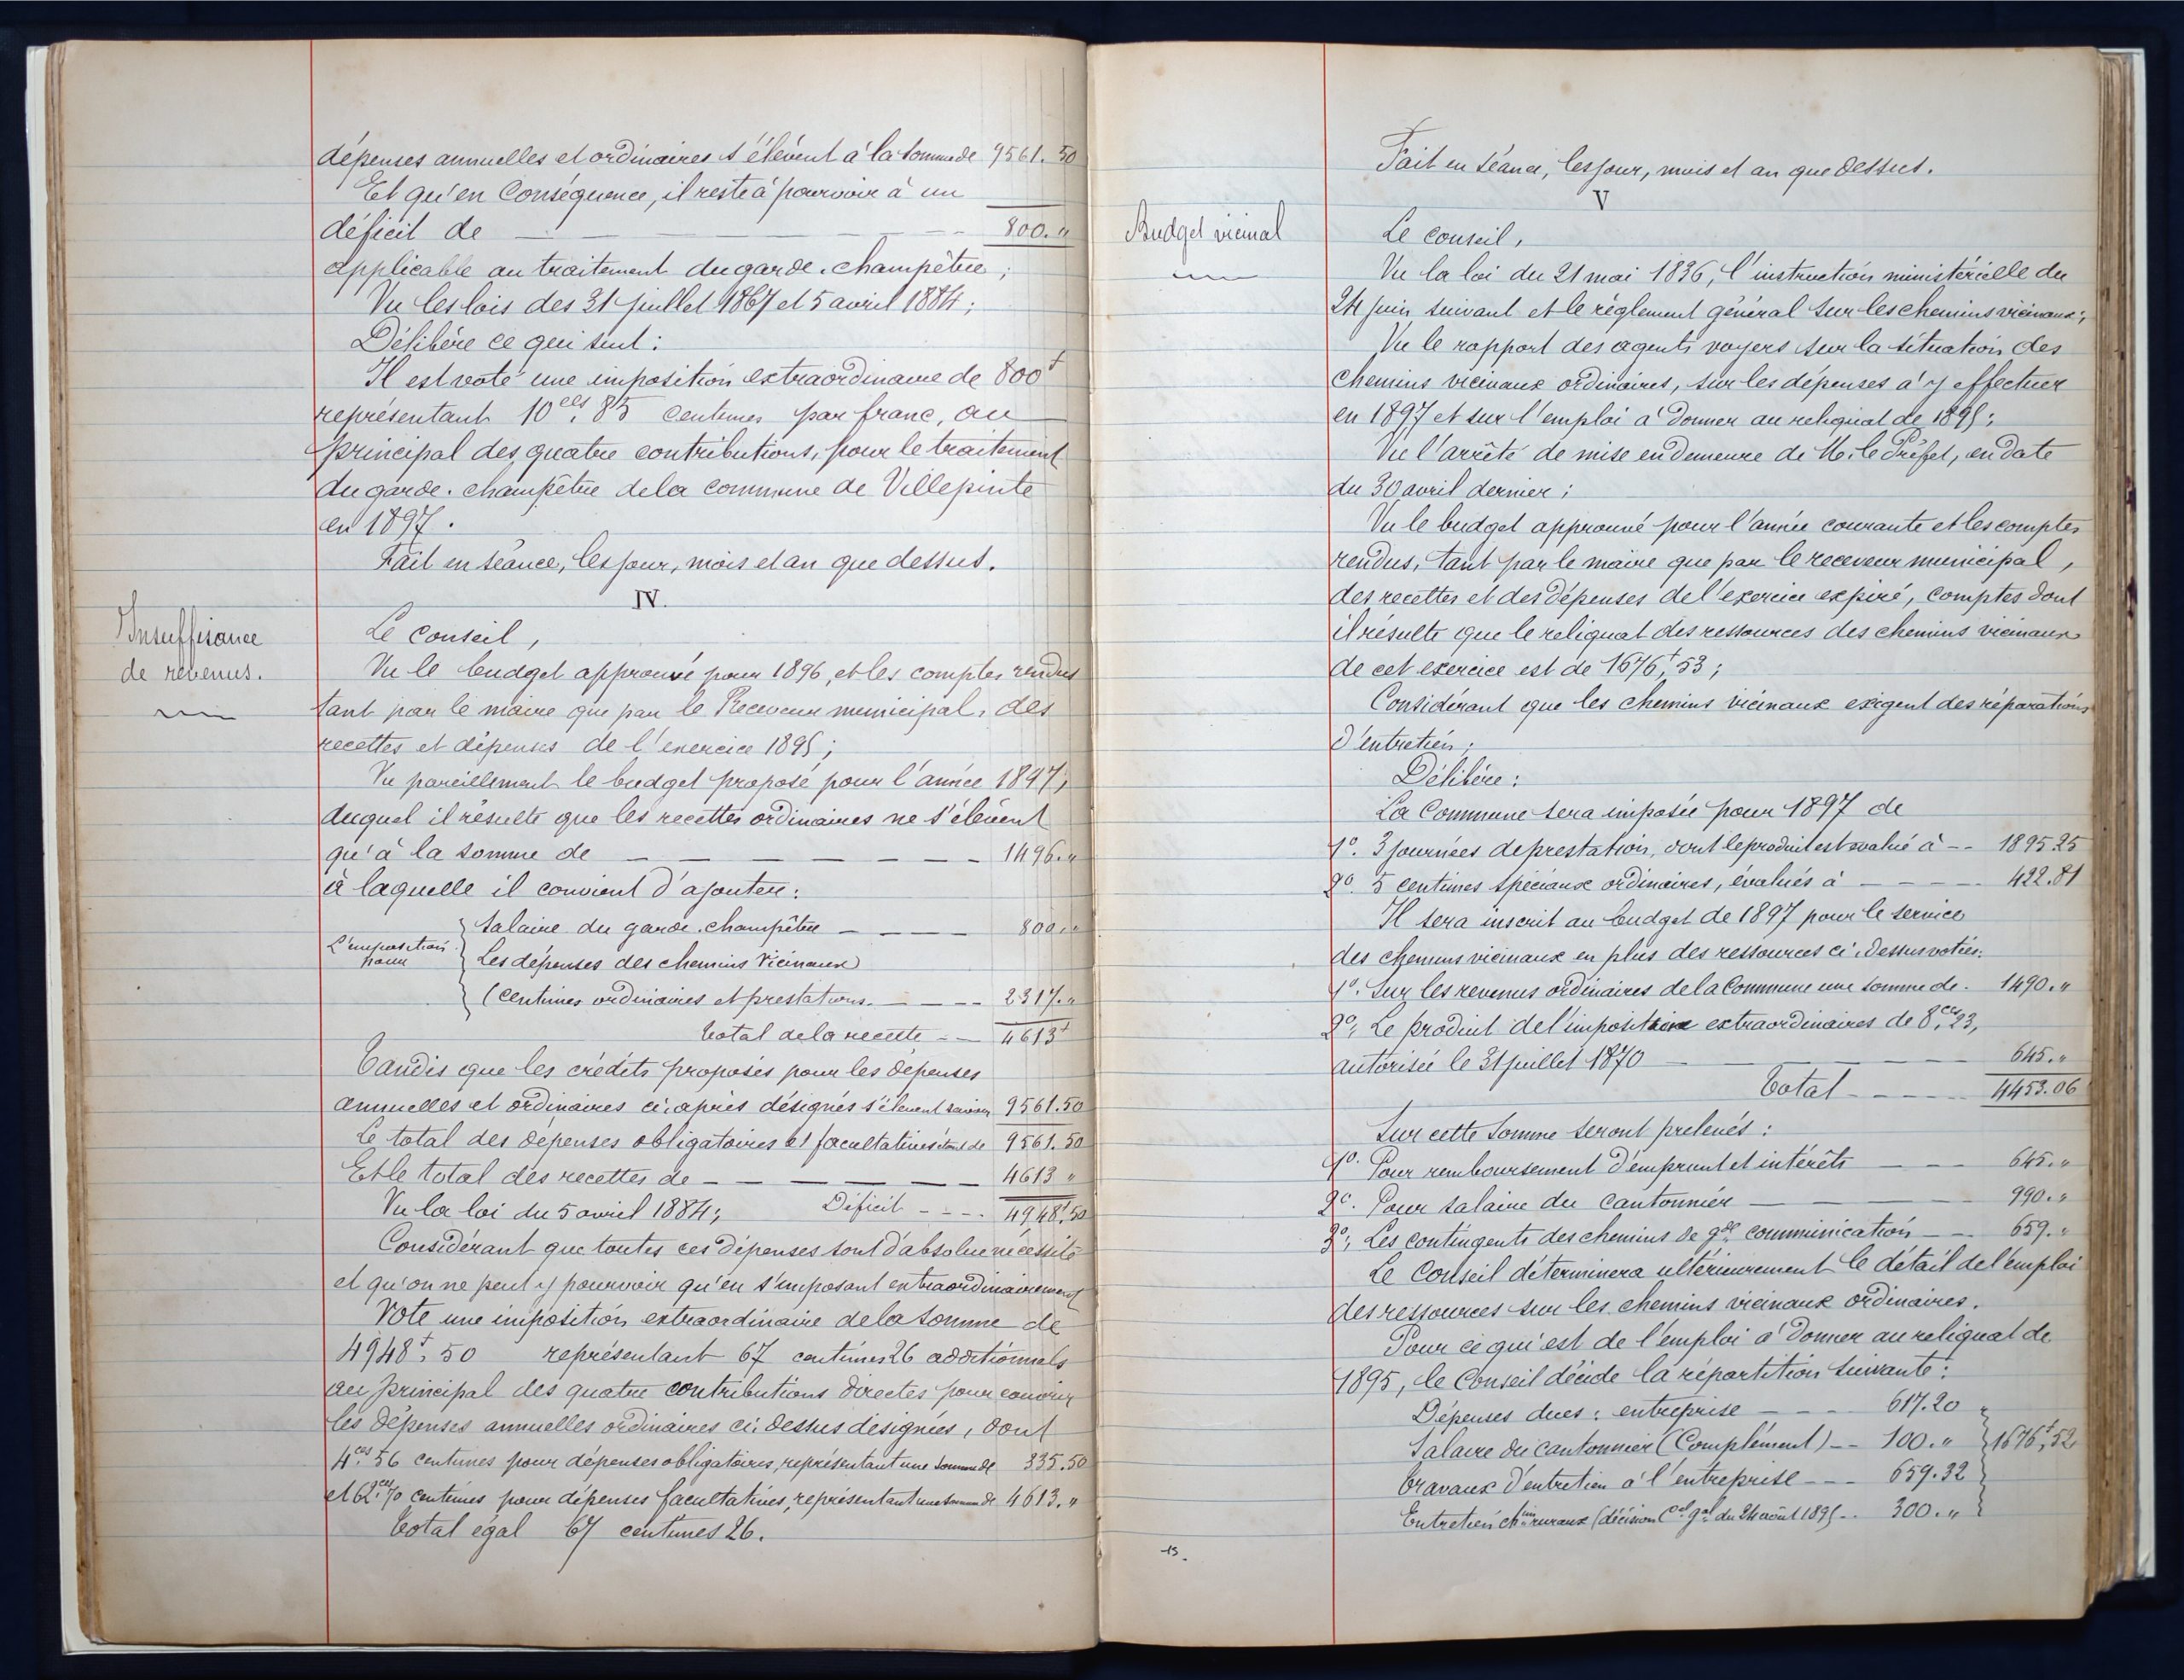 dépenses annuelles et ordinaires s'élèvent à la somme de 9561.50
Et qu'en Conséquence, il reste à pourvoir à un
déficit de — — — — — — — 800. "
applicable au traitement du garde-champêtre ;
Vu les lois des 31 juillet 1867 et 5 avril 1884 ;
Délibère ce qui suit :
Il est voté une imposition extraordinaire de 800f
représentant 10ces, 85 centimes par franc, au
principal des quatre contributions, pour le traitement
du garde-champêtre de la commune de Villepinte
en 1897.
Fait en séance, les jour, mois et an que dessus.
IV.
Insuffisance
de revenus.
Le conseil,
Vu le budget approuvé pour 1896, et les comptes rendus
tant par le maire que par le Receveur municipal, des
recettes et dépenses de l'exercice 1895 ;
Vu pareillement le budget proposé pour l'année 1897,
duquel il résulte que les recettes ordinaires ne s'élèvent
qu'à la somme de — — — — — — — 1496. "
à laquelle il convient d'ajouter :
L'imposition pour
Salaire du garde-champêtre — — — — 800. "
Les dépenses des chemins vicinaux
(Centimes ordinaires et prestations. — — — 2317. "
Total de la recette — — 4613f
Tandis que les crédits proposés pour les dépenses
annuelles et ordinaires ci-après désignés s'élèvent 9561.50
Le total des dépenses obligatoires et facultatives étant de 9561.50
Et le total des recettes de — — — — — — 4613 "
Vu la loi du 5 avril 1884 ; Déficit - - - - 4948.50
Considérant que toutes ces dépenses sont d'absolue nécessité
et qu'on ne peut y pourvoir qu'en s'imposant extraordinairement
Vote une imposition extraordinaire de la somme de
4948f, 50 représentant 67 centimes 26 additionnels
au principal des quatre contributions directes pour couvrir
les dépenses annuelles ordinaires ci-dessus désignées, dont
4ces, 56 centimes pour dépenses obligatoires, représentant une somme de 335.50
et 62ces, 70 centimes pour dépenses facultatives, représentant une somme de 4613. "
Total égal 67 centimes 26.
Fait en séance, les jour, mois et an que dessus.
V
Budget vicinal
Le conseil,
Vu la loi du 21 mai 1836, l'instruction ministérielle du
24 juin suivant et le règlement général sur les chemins vicinaux ;
Vu le rapport des agents voyers sur la situation des
chemins vicinaux ordinaires, sur les dépenses à y effectuer
en 1897 et sur l'emploi à donner au reliquat de 1895 ;
Vu l'arrêté de mise en demeure de M. le Préfet, en date
du 30 avril dernier ;
Vu le budget approuvé pour l'année courante et les comptes
rendus, tant par le maire que par le receveur municipal,
des recettes et des dépenses de l'exercice expiré, comptes dont
il résulte que le reliquat des ressources des chemins vicinaux
de cet exercice est de 1676f, 53 ;
Considérant que les chemins vicinaux exigent des réparations
d'entretien ;
Délibère :
La Commune sera imposée pour 1897 de
1o. 3 journées de prestation, dont le produit est évalué à - - 1895 25
2o. 5 centimes spéciaux ordinaires, évalués à — — — — 422.81
Il sera inscrit au budget de 1897 pour le service
des chemins vicinaux en plus des ressources ci-dessus votées :
1o. Sur les revenus ordinaires de la Commune une somme de. 1490. "
2o, Le produit de l'imposition extraordinaires de 8ces, 23,
autorisée le 31 juillet 1870 — — — — — 645. "
Total - - - - - - 4453.06
Sur cette somme seront prélevés :
1o. Pour remboursement d'emprunt et intérêts — — — 645. "
2o. Pour salaire du cantonnier — — — — — 990. "
3o, Les contingents des chemins de gde communication — — 659. "
Le Conseil déterminera ultérieurement le détail de l'emploi
des ressources sur les chemins vicinaux ordinaires.
Pour ce qui est de l'emploi à donner au reliquat de
1895, le Conseil décide la répartition suivante :
Dépenses dues : entreprise — — — 617.20
Salaire du cantonnier (Complément) - - 100. " 1676f, 52
Travaux d'entretien à l'entreprise - - - 659.32
Entretien chins ruraux (décision Cel gal du 24 août 1895 - - 300. "
15.